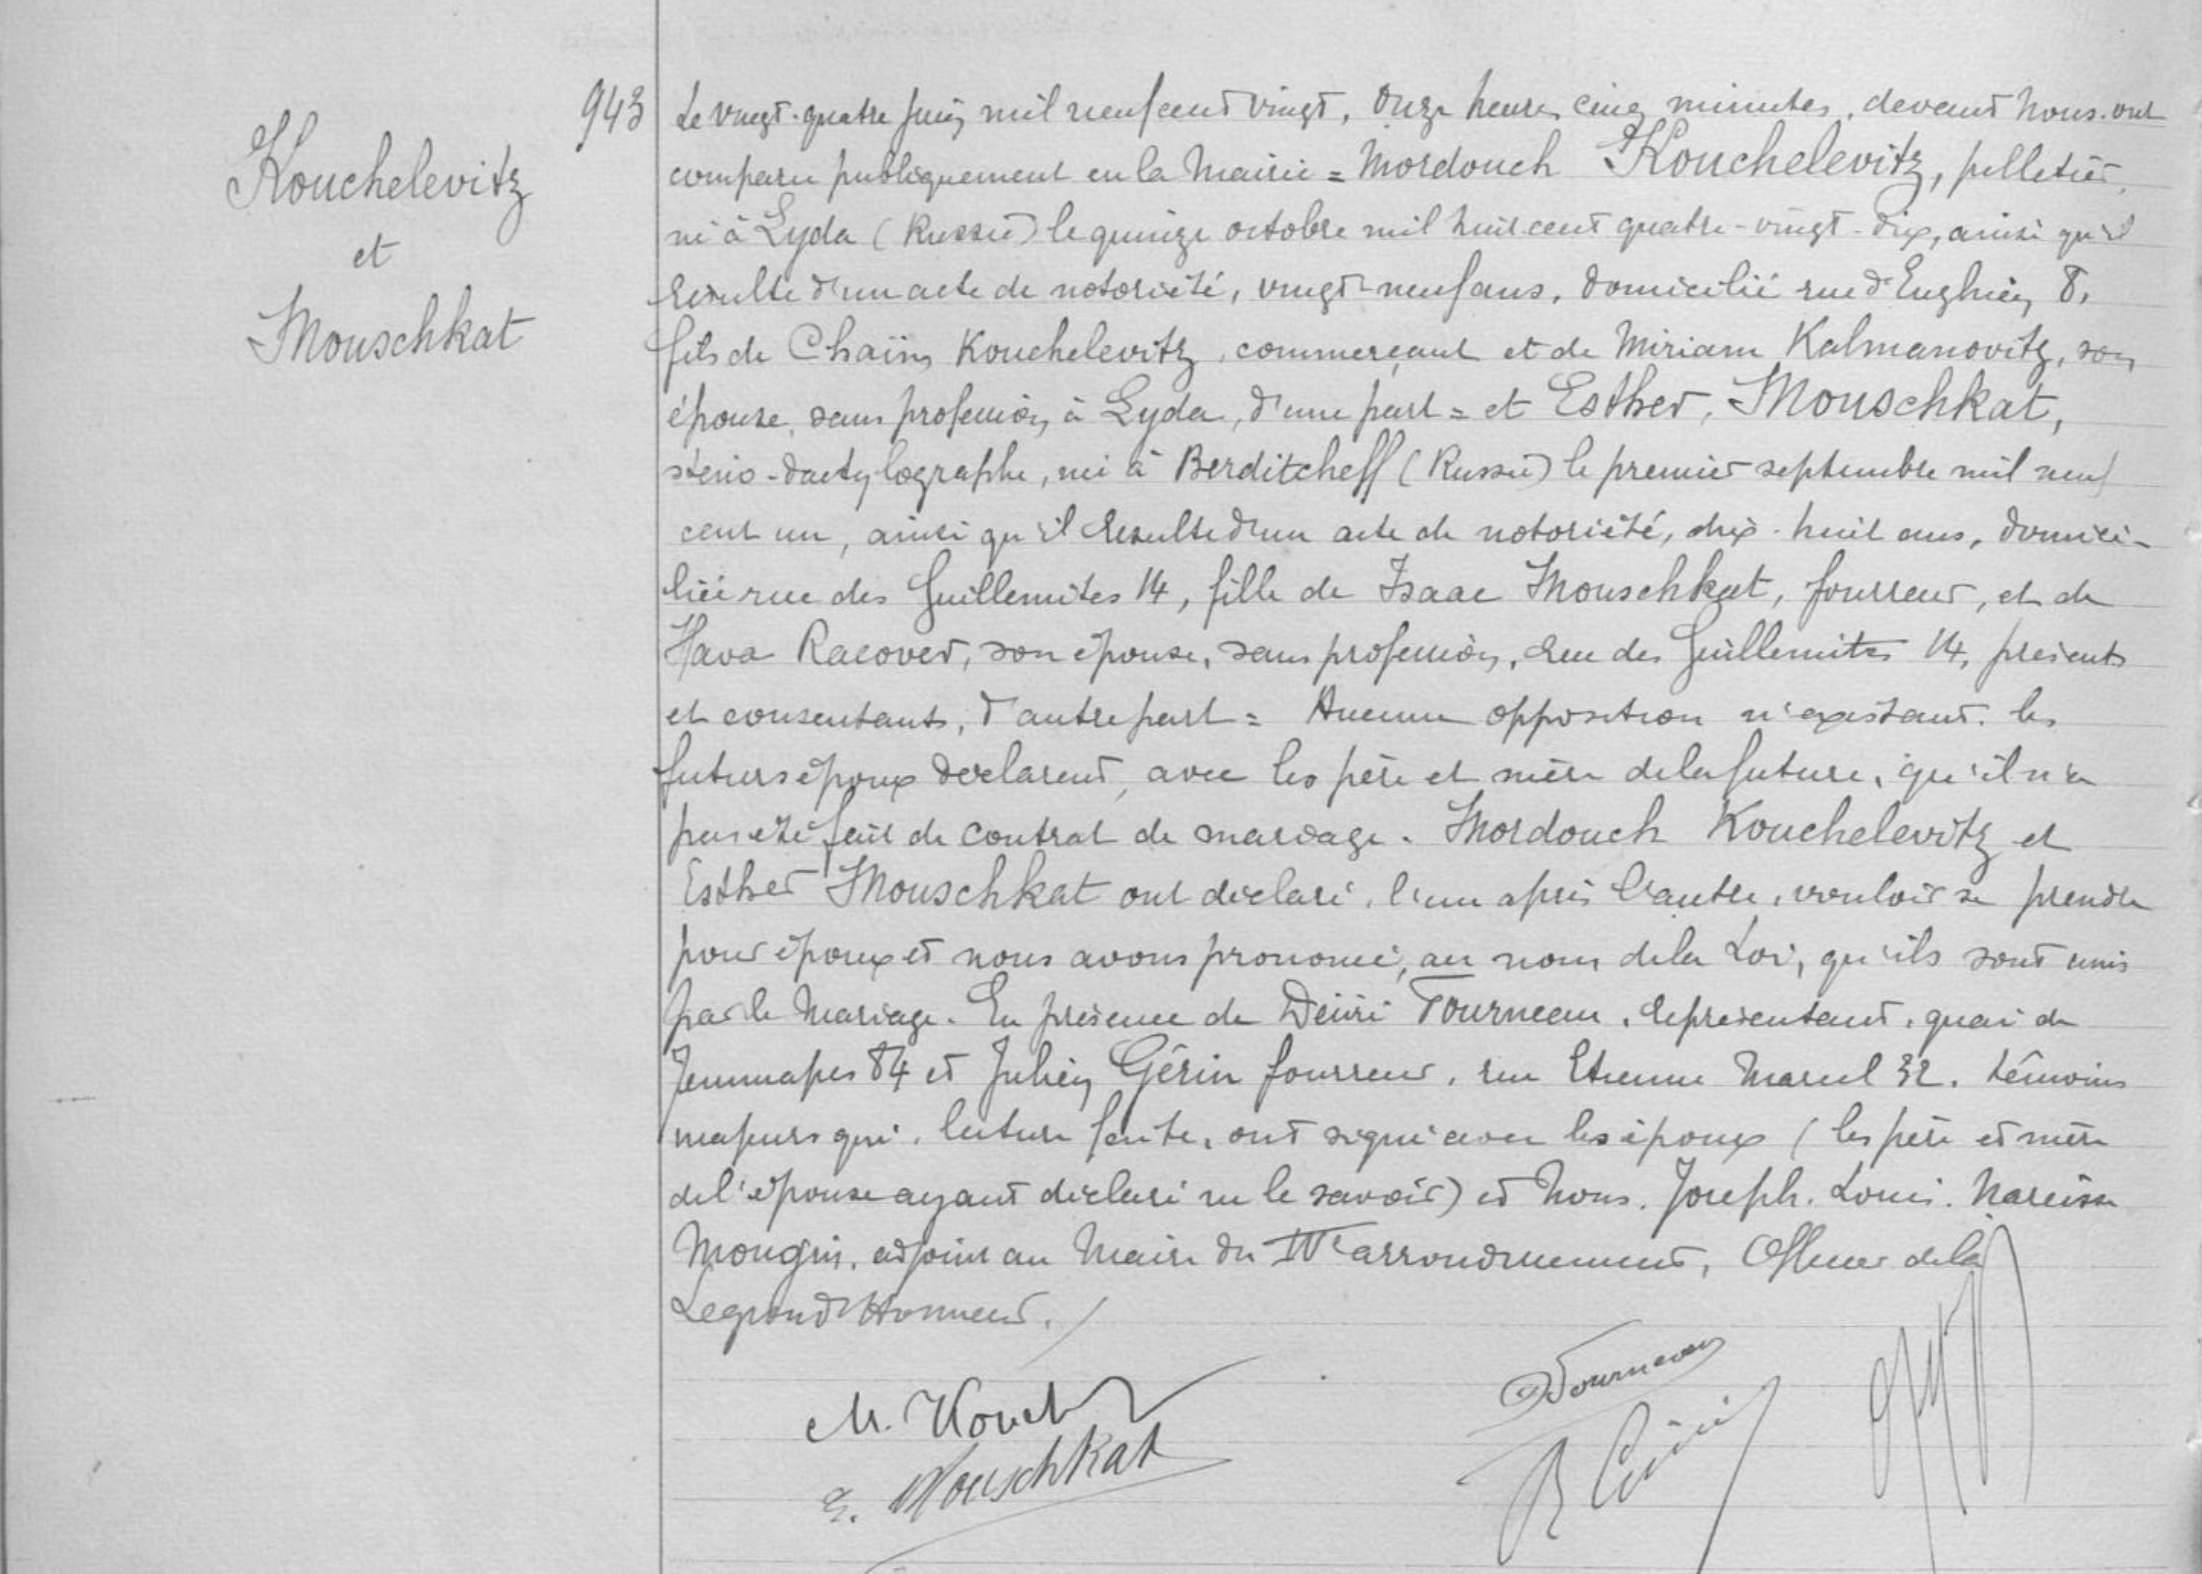 943
Kouchelevitz
et
Mouschkat
Le vingt-quatre Juin mil neuf cent vingt, onze heures cinq minutes, devant Nous. ont
comparu publiquement en la Mairie = Mordouch Kouchelevitz, pelletier,
né à Lyda (Russie) le quinze octobre mil huit cent quatre-vingt-dix, ainsi qu'il
résulte d'un acte de notoriété, vingt-neuf ans, domicilié rue d'Enghien, 8,
fils de Chaïm Kouchelevitz, commerçant et de Miriam Kalmanovitz, son
épouse, sans profession, à Lyda, d'une part = et Esther, Mouschkat,
sténo-dactylographe, née à Berditcheff (Russie) le premier septembre mil neuf
cent un, ainsi qu'il résulte d'un acte de notoriété, dix-huit ans, domici-
liée rue des Guillemites 14, fille de Isaac Mouschkat, fourreur, et de
Hava Racover, son épouse, sans profession, rue des Guillemites 14, présents
et consentants, d'autre part = Aucune opposition n'existant. les
futurs époux déclarent, avec les père et mère de la future, qu'il n'a
pas été fait de contrat de mariage. Mordouch Kouchelevitz et
Esther Mouschkat ont déclaré, l'un après l'autre, vouloir se prendre
pour époux et nous avons prononcé, au nom de la Loi, qu'ils sont unis
par le Mariage. En présence de Désiré Tourneau, représentant, quai de
Jemmapes 84 et Julien Gérin fourreur, rue Etienne Marcel 32. témoins
majeurs qui, lecture faite, ont signé avec les époux (les père et mère
de l'épouse ayant déclaré ne le savoir) et Nous. Joseph. Louis. Narcisse
Mongin, adjoint au Maire du IVe arrondissement, Officier de la
Legion d'Honneur.
M. Kouch
E. Mouschkat
Tourneau